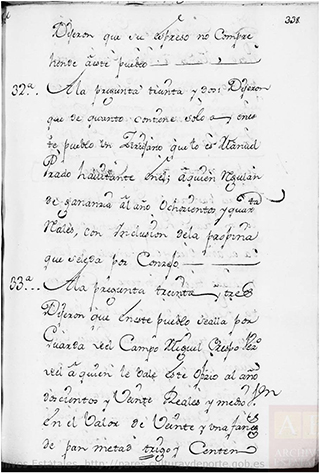 338.
Dijeron que su espreso no Compre
hende á este pueblo
32.ª. A la pregunta treinta y dos: Dijeron
que de quanto contiene solo a en es
te pueblo un Zirujano que lo es Manuel
Prado havitante en el; a quien regulan
de ganancia al año Ochozientos y quarta
Reales, con inclusion de la propina
que se le da por Conzejo
33.ª.. A la pregunta treinta y tres
Dijeron que en este pueblo se alla por
Guarda del Campo Miguel Crespo Vez.º
del a quien le vale este ofizio al año
doscientos y Veinte Reales y medio Vn
En el Valor de Veinte y una fanegas
de pan metad trigo y Centen